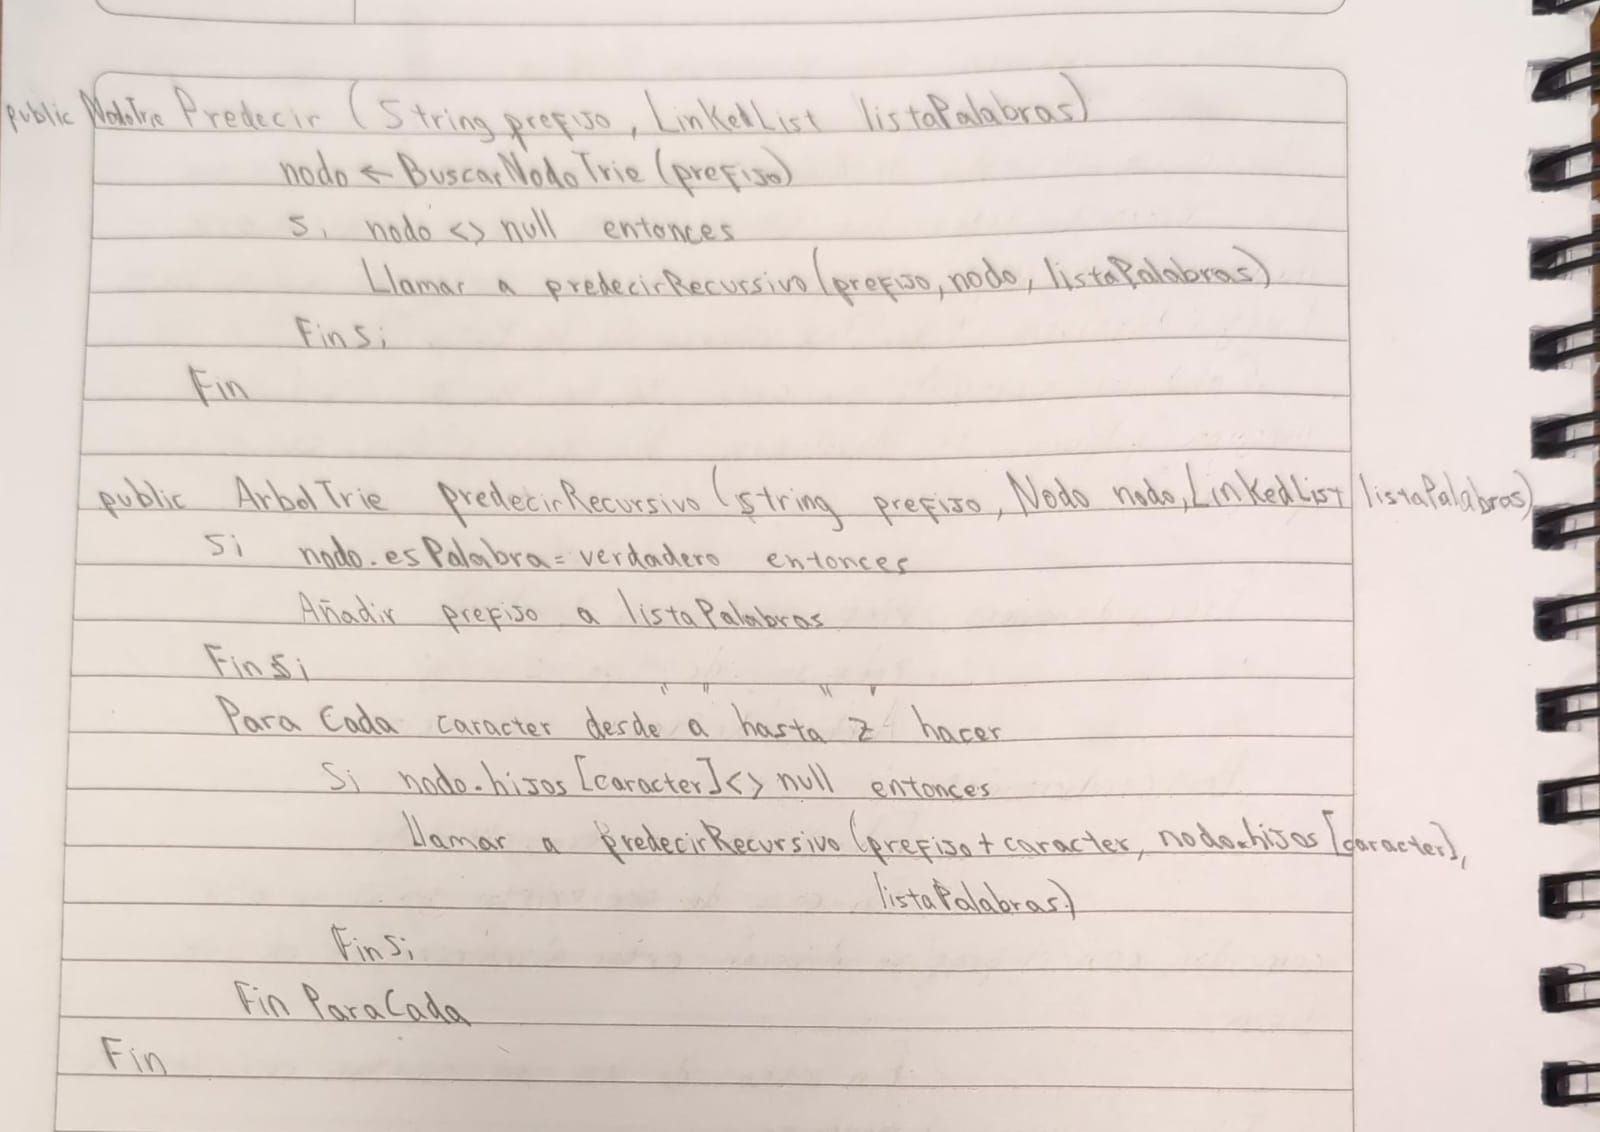 public NodoTrie Predecir (String prefijo, LinkedList listaPalabras)
nodo ← BuscarNodoTrie (prefijo)
Si nodo <> null entonces
Llamar a predecirRecursivo (prefijo, nodo, listaPalabras)
Fin Si
Fin
public ArbolTrie predecirRecursivo (string prefijo, Nodo nodo, LinkedList listaPalabras)
Si nodo.esPalabra = verdadero entonces
Añadir prefijo a listaPalabras
Fin Si
Para Cada caracter desde "a" hasta "z" hacer
Si nodo.hijos [caracter] <> null entonces
llamar a predecirRecursivo (prefijo + caracter, nodo.hijos [caracter],
listaPalabras)
Fin Si
Fin ParaCada
Fin